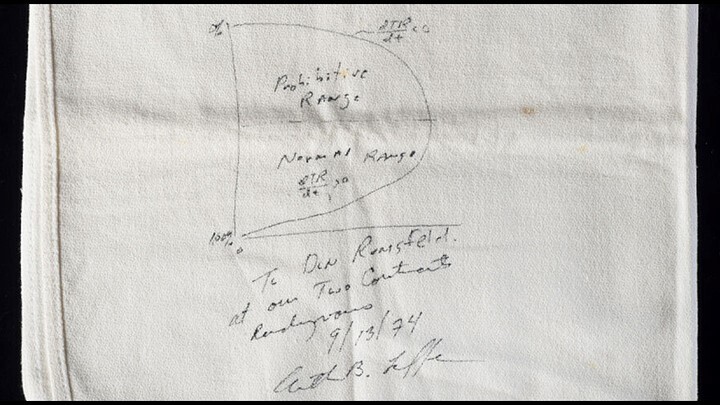 0%
∂TR/∂t < 0
Prohibitive
Range
Normal Range
∂TR/∂t > 0
100%
0
To Don Rumsfeld.
at our Two Continents
Rendezvous
9/13/74
Arthur B. Laffer